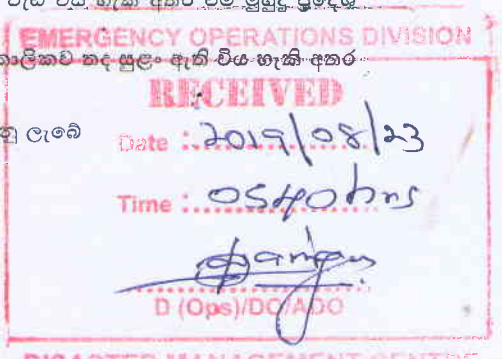 වැඩි විය හැකි අතර එම මුහුදු ප්‍රදේශ
EMERGENCY OPERATIONS DIVISION
තාවකාලිකව තද සුළං ඇති විය හැකි අතර
RECEIVED
නු ලැබේ
Date : 2019/08/23
Time : 0540hrs
D (Ops)/DO/ADO
DISASTER MANAGEMENT CENTRE